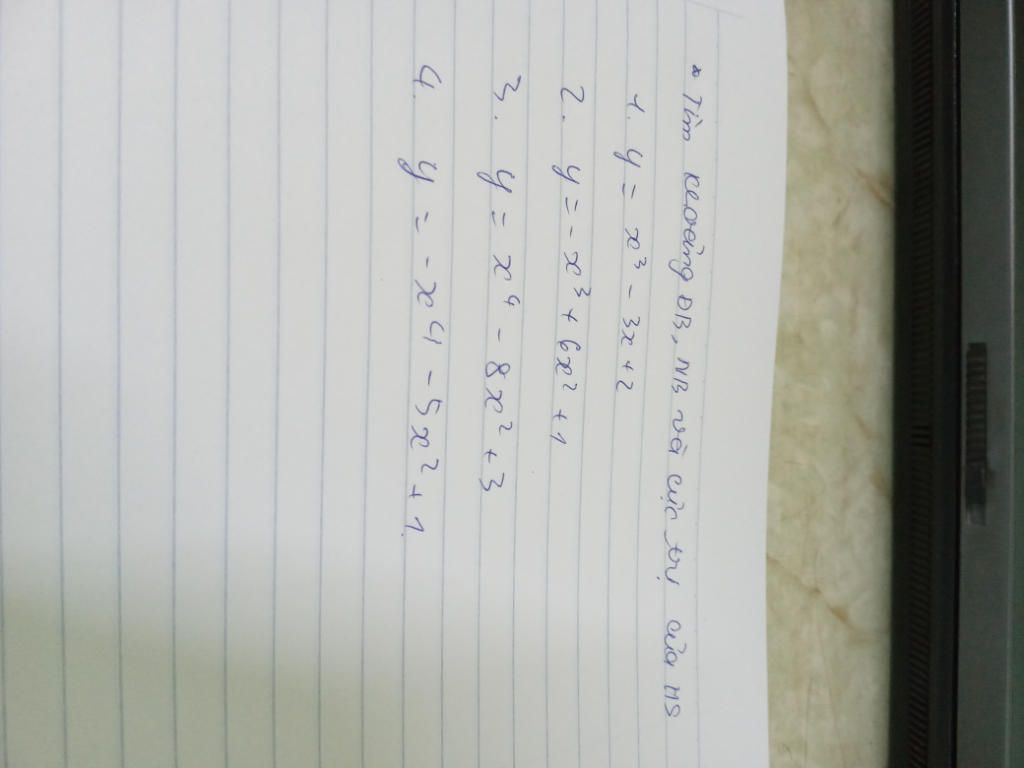 * Tìm khoảng ĐB, NB và cực trị của HS
1. y = x³ - 3x + 2
2. y = - x³ + 6x² + 1
3. y = x⁴ - 8x² + 3
4. y = - x⁴ - 5x² + 1.